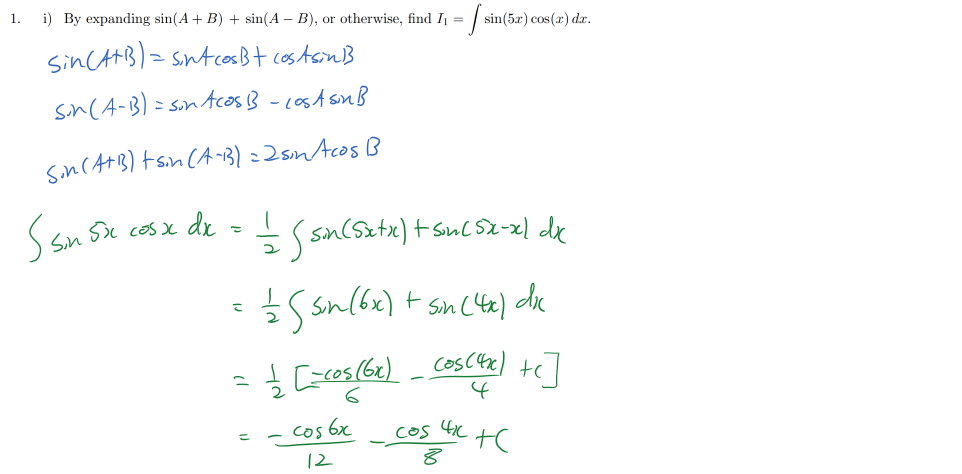 1. i) By expanding sin(A + B) + sin(A − B), or otherwise, find I₁ = ∫ sin(5x) cos(x) dx.
sin(A+B) = sinAcosB + cosAsinB
sin(A-B) = sinAcosB - cosAsinB
sin(A+B) + sin(A-B) = 2sinAcosB
∫ sin 5x cos x dx = 1/2 ∫ sin(5x+x) + sin(5x-x) dx
= 1/2 ∫ sin(6x) + sin(4x) dx
= 1/2 [-cos(6x)/6 - cos(4x)/4 + c]
= - cos 6x/12 - cos 4x/8 + C